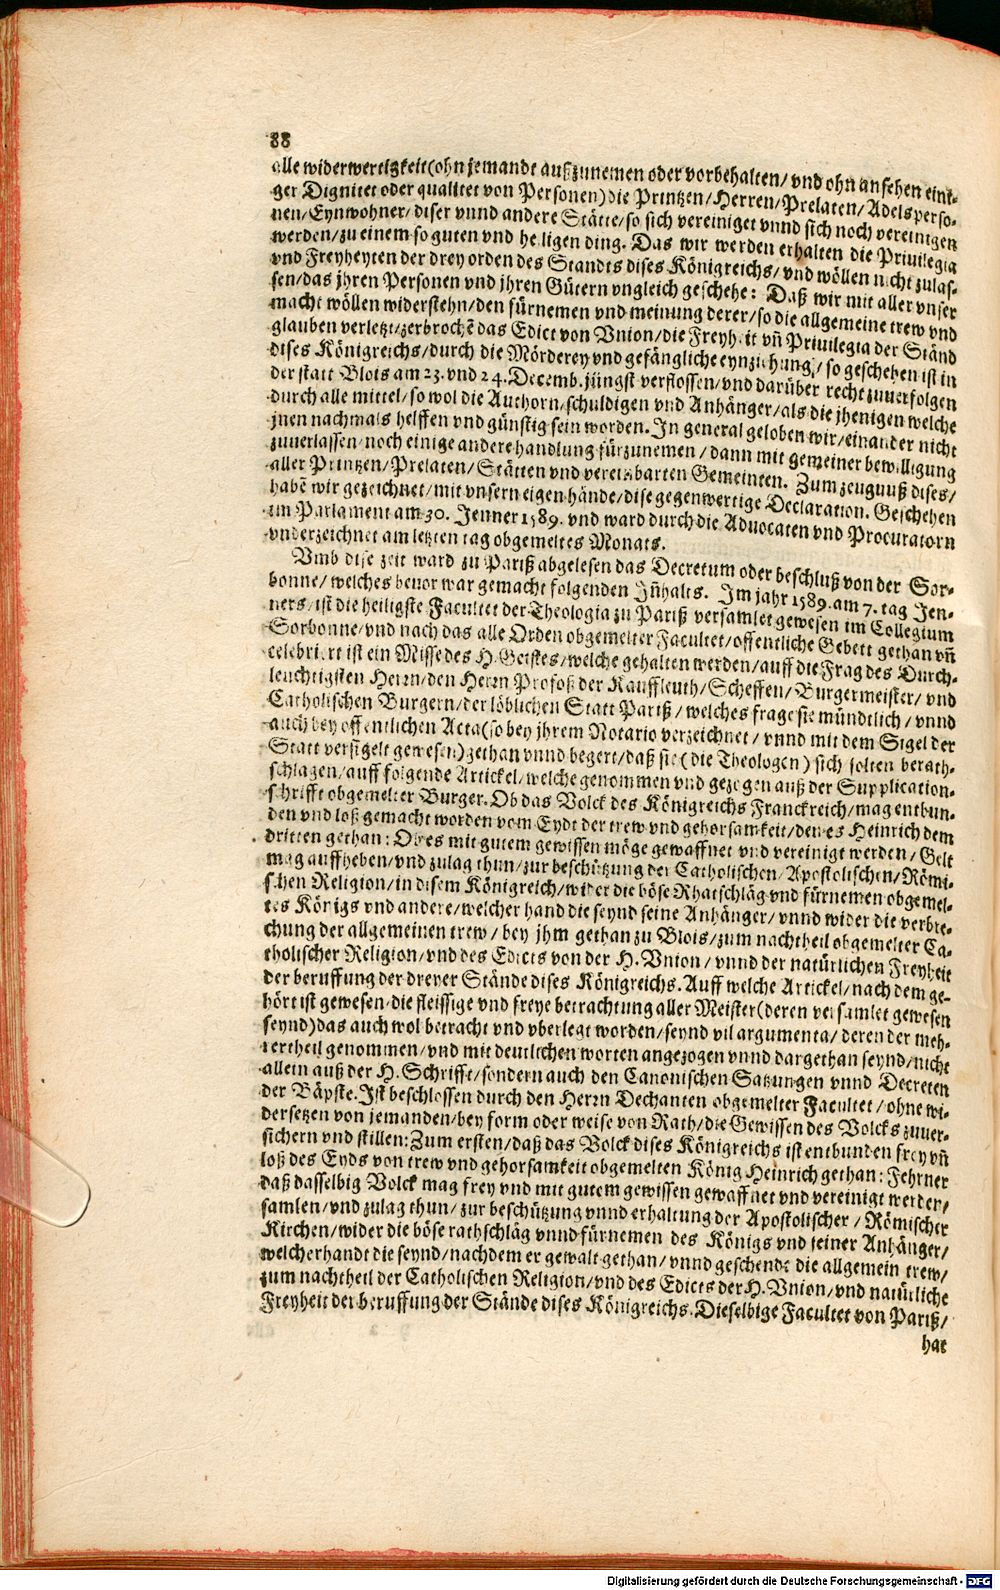 88
alle widerwertigkeit(ohn jemandt außzunemen oder vorbehalten/ vnd ohn ansehen eini-
ger Dignitet oder qualitet von Personen)die Printzen/Herren/Prelaten/Adelsperso-
nen/Eynwohner/diser vnnd andere Stätte/so sich vereiniget vnnd sich noch vereinigen
werden/zu einem so guten vnd heiligen ding. Das wir werden erhalten die Priuilegia
vnd Freyheyten der drey orden des Standts dises Königreichs/vnd wöllen nicht zulas-
sen/das jhren Personen vnd jhren Gütern vngleich geschehe: Daß wir mit aller vnser
macht wöllen widerstehn/den fürnemen vnd meinung derer/so die allgemeine trew vnd
glauben verletzt/zerbrochē das Edict von Vnion/die Freyheit vn̄ Priuilegia der Ständ
dises Königreichs/durch die Mörderey vnd gefängliche eynziehung/so geschehen ist in
der statt Blois am 23. vnd 24. Decemb. jüngst verflossen/vnd darüber recht zuuerfolgen
durch alle mittel/so wol die Authorn/schuldigen vnd Anhänger/als die jhenigen welche
jnen nachmals helffen vnd günstig sein worden. In general geloben wir/einander nicht
zuuerlassen/noch einige andere handlung fürzunemen/dann mit gemeiner bewilligung
aller Printzen/Prelaten/Stätten vnd vereinbarten Gemeinten. Zum zeugnuß dises/
habē wir gezeichnet/mit vnsern eigen hände/dise gegenwertige Declaration. Geschehen
im Parlament am 30. Jenner 1589. vnd ward durch die Aduocaten vnd Procuratorn
vnderzeichnet am letzten tag obgemeltes Monats.
Vmb dise zeit ward zu Pariß abgelesen das Decretum oder beschluß von der Sor-
bonne/welches beuor war gemacht folgenden Jnhalts. Im jahr 1589. am 7. tag Jen-
ners/ist die heiligste Facultet der Theologia zu Pariß versamlet gewesen im Collegium
Sorbonne/vnd nach das alle Orden obgemelter Facultet/offentliche Gebett gethan vn̄
celebriert ist ein Misse des H. Geistes/welche gehalten werden/auff die Frag des Durch-
leuchtigsten Herrn/den Herrn Profoß der Kauffleuth/Scheffen/Burgermeister/vnd
Catholischen Burgern/der löblichen Statt Pariß/welches frage sie mündtlich/vnnd
auch bey offentlichen Acta(so bey jhrem Notario verzeichnet/vnnd mit dem Sigel der
Statt versigelt gewesen)gethan vnnd begert/daß sie(die Theologen)sich solten berath-
schlagen/auff folgende Artickel/welche genommen vnd gezogen auß der Supplication-
schrifft obgemelter Burger. Ob das Volck des Königreichs Franckreich/mag entbun-
den vnd loß gemacht worden vom Eydt der trew vnd gehorsamkeit/den es Heinrich dem
dritten gethan: Ob es mit gutem gewissen möge gewaffnet vnd vereinigt werden/Gelt
mag auffheben/vnd zulag thun/zur beschützung der Catholischen/Apostolischen/Römi-
schen Religion/in disem Königreich/wider die böse Rhatschläg vnd fürnemen obgemel-
tes Königs vnd andere/welcher hand die seynd seine Anhänger/vnnd wider die verbre-
chung der allgemeinen trew/bey jhm gethan zu Blois/zum nachtheil obgemelter Ca-
tholischer Religion/vnd des Edicts von der H. Vnion/vnnd der natürlichen Freyheit
der beruffung der dreyer Stände dises Königreichs. Auff welche Artickel/nach dem ge-
hört ist gewesen/die fleissige vnd freye betrachtung aller Meister(deren versamlet gewesen
seynd)das auch wol betracht vnd vberlegt worden/seynd vil argumenta/deren der meh-
rertheil genommen/vnd mit deutlichen worten angezogen vnnd dargethan seynd/nicht
allein auß der H. Schrifft/sondern auch den Canonischen Satzungen vnnd Decreten
der Bäpste. Ist beschlossen durch den Herrn Dechanten obgemelter Facultet/ohne wi-
dersetzen von jemanden/bey form oder weise von Rath/die Gewissen des Volcks zuuer-
sichern vnd stillen: Zum ersten/daß das Volck dises Königreichs ist entbunden frey vn̄
loß des Eyds von trew vnd gehorsamkeit obgemelten König Heinrich gethan: Fehrner
daß dasselbig Volck mag frey vnd mit gutem gewissen gewaffnet vnd vereinigt werden/
samlen/vnd zulag thun/zur beschützung vnnd erhaltung der Apostolischer/Römischer
Kirchen/wider die böse rathschläg vnnd fürnemen des Königs vnd seiner Anhänger/
welcherhandt die seynd/nachdem er gewalt gethan/vnnd geschendt die allgemein trew/
zum nachtheil der Catholischen Religion/vnd des Edicts der H. Vnion/vnd natürliche
Freyheit der beruffung der Stände dises Königreichs. Dieselbige Facultet von Pariß/
hat
Digitalisierung gefördert durch die Deutsche Forschungsgemeinschaft - DFG